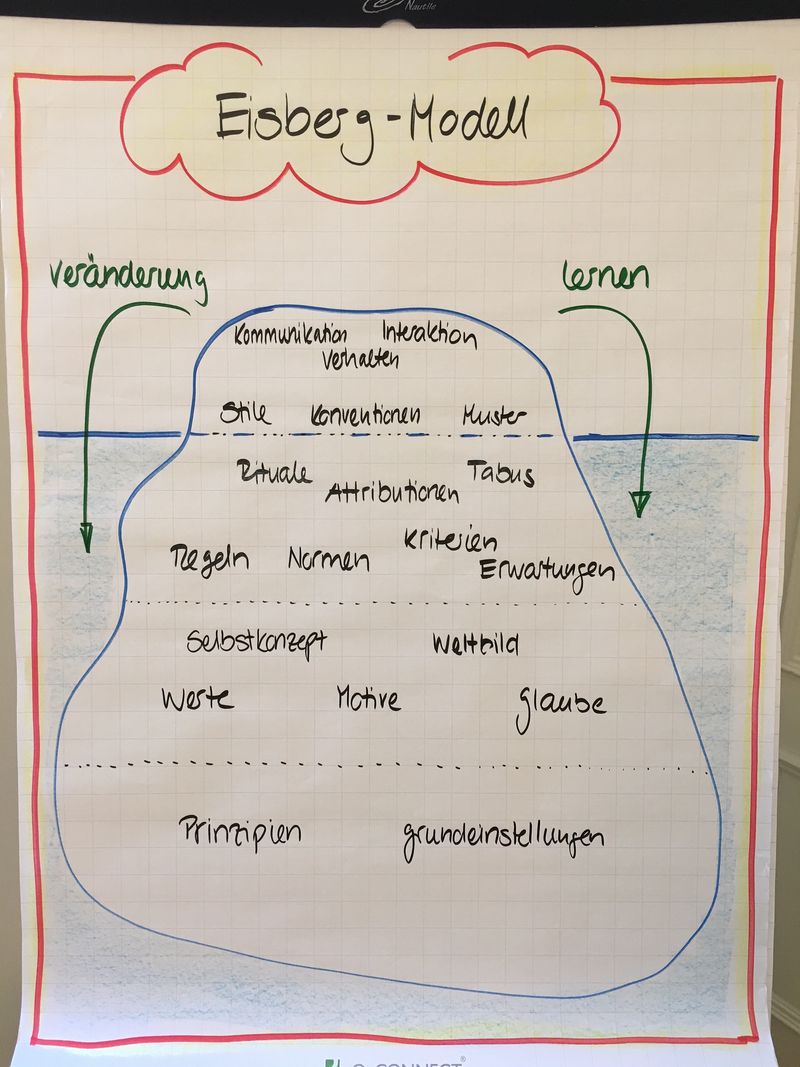 Nautilo
Eisberg-Modell
Veränderung
lernen
Kommunikation Interaktion
Verhalten
Stile Konventionen Muster
Rituale Tabus
Attributionen
Regeln Normen Kriterien
Erwartungen
Selbstkonzept Weltbild
Werte Motive Glaube
Prinzipien grundeinstellungen
CONNECT®